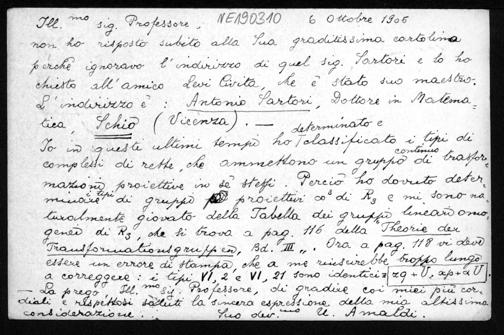 Ill.mo sig. Professore, NE190310 6 Ottobre 1906
non ho risposto subito alla Sua graditissima cartolina
perchè ignoravo l'indirizzo di quel sig. Sartori e lo ho
chiesto all'amico Levi Civita, che è stato suo maestro.
L'indirizzo è: Antonio Sartori, Dottore in Matema-
tica, Schio (Vicenza). —
Io in queste ultimi tempi ho determinato e classificato i tipi di
complessi di rette, che ammettono un gruppo continuo di trasfor-
mazioni proiettive in sè stessi. Perciò ho dovuto deter-
minare i tipi di gruppi proiettivi di R3 e mi sono na-
turalmente giovato della Tabella dei gruppi lineari omo-
genei di R3, che si trova a pag. 116 della "Theorie der
Transformationsgruppen, Bd. III". Ora a pag. 118 vi deve
essere un errore di stampa, che a me riuscirebbe troppo lungo
a correggere: i tipi VI, 2 e VI, 21 sono identici: xq + U, xp + αU
— La prego, Ill.mo Sig. Professore, di gradire coi miei più cor-
diali e rispettosi saluti la sincera espressione della mia altissima
considerazione. Suo dev.mo U. Amaldi.